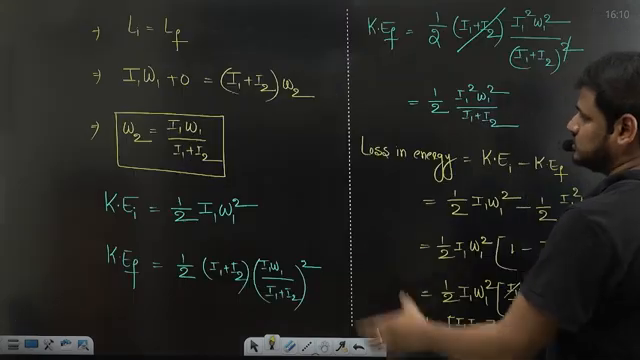 ⇒ Li = Lf
⇒ I₁ω₁ + 0 = (I₁+I₂)ω₂
⇒ ω₂ = I₁ω₁/(I₁+I₂)
K.Ei = 1/2 I₁ω₁²
K.Ef = 1/2 (I₁+I₂) (I₁ω₁/(I₁+I₂))²
16:10
K.Ef = 1/2 (I₁+I₂) I₁²ω₁²/(I₁+I₂)²
= 1/2 I₁²ω₁²/(I₁+I₂)
Loss in energy = K.Ei − K.Ef
= 1/2 I₁ω₁² − 1/2 I₁²
= 1/2 I₁ω₁² [1 −
= 1/2 I₁ω₁² [